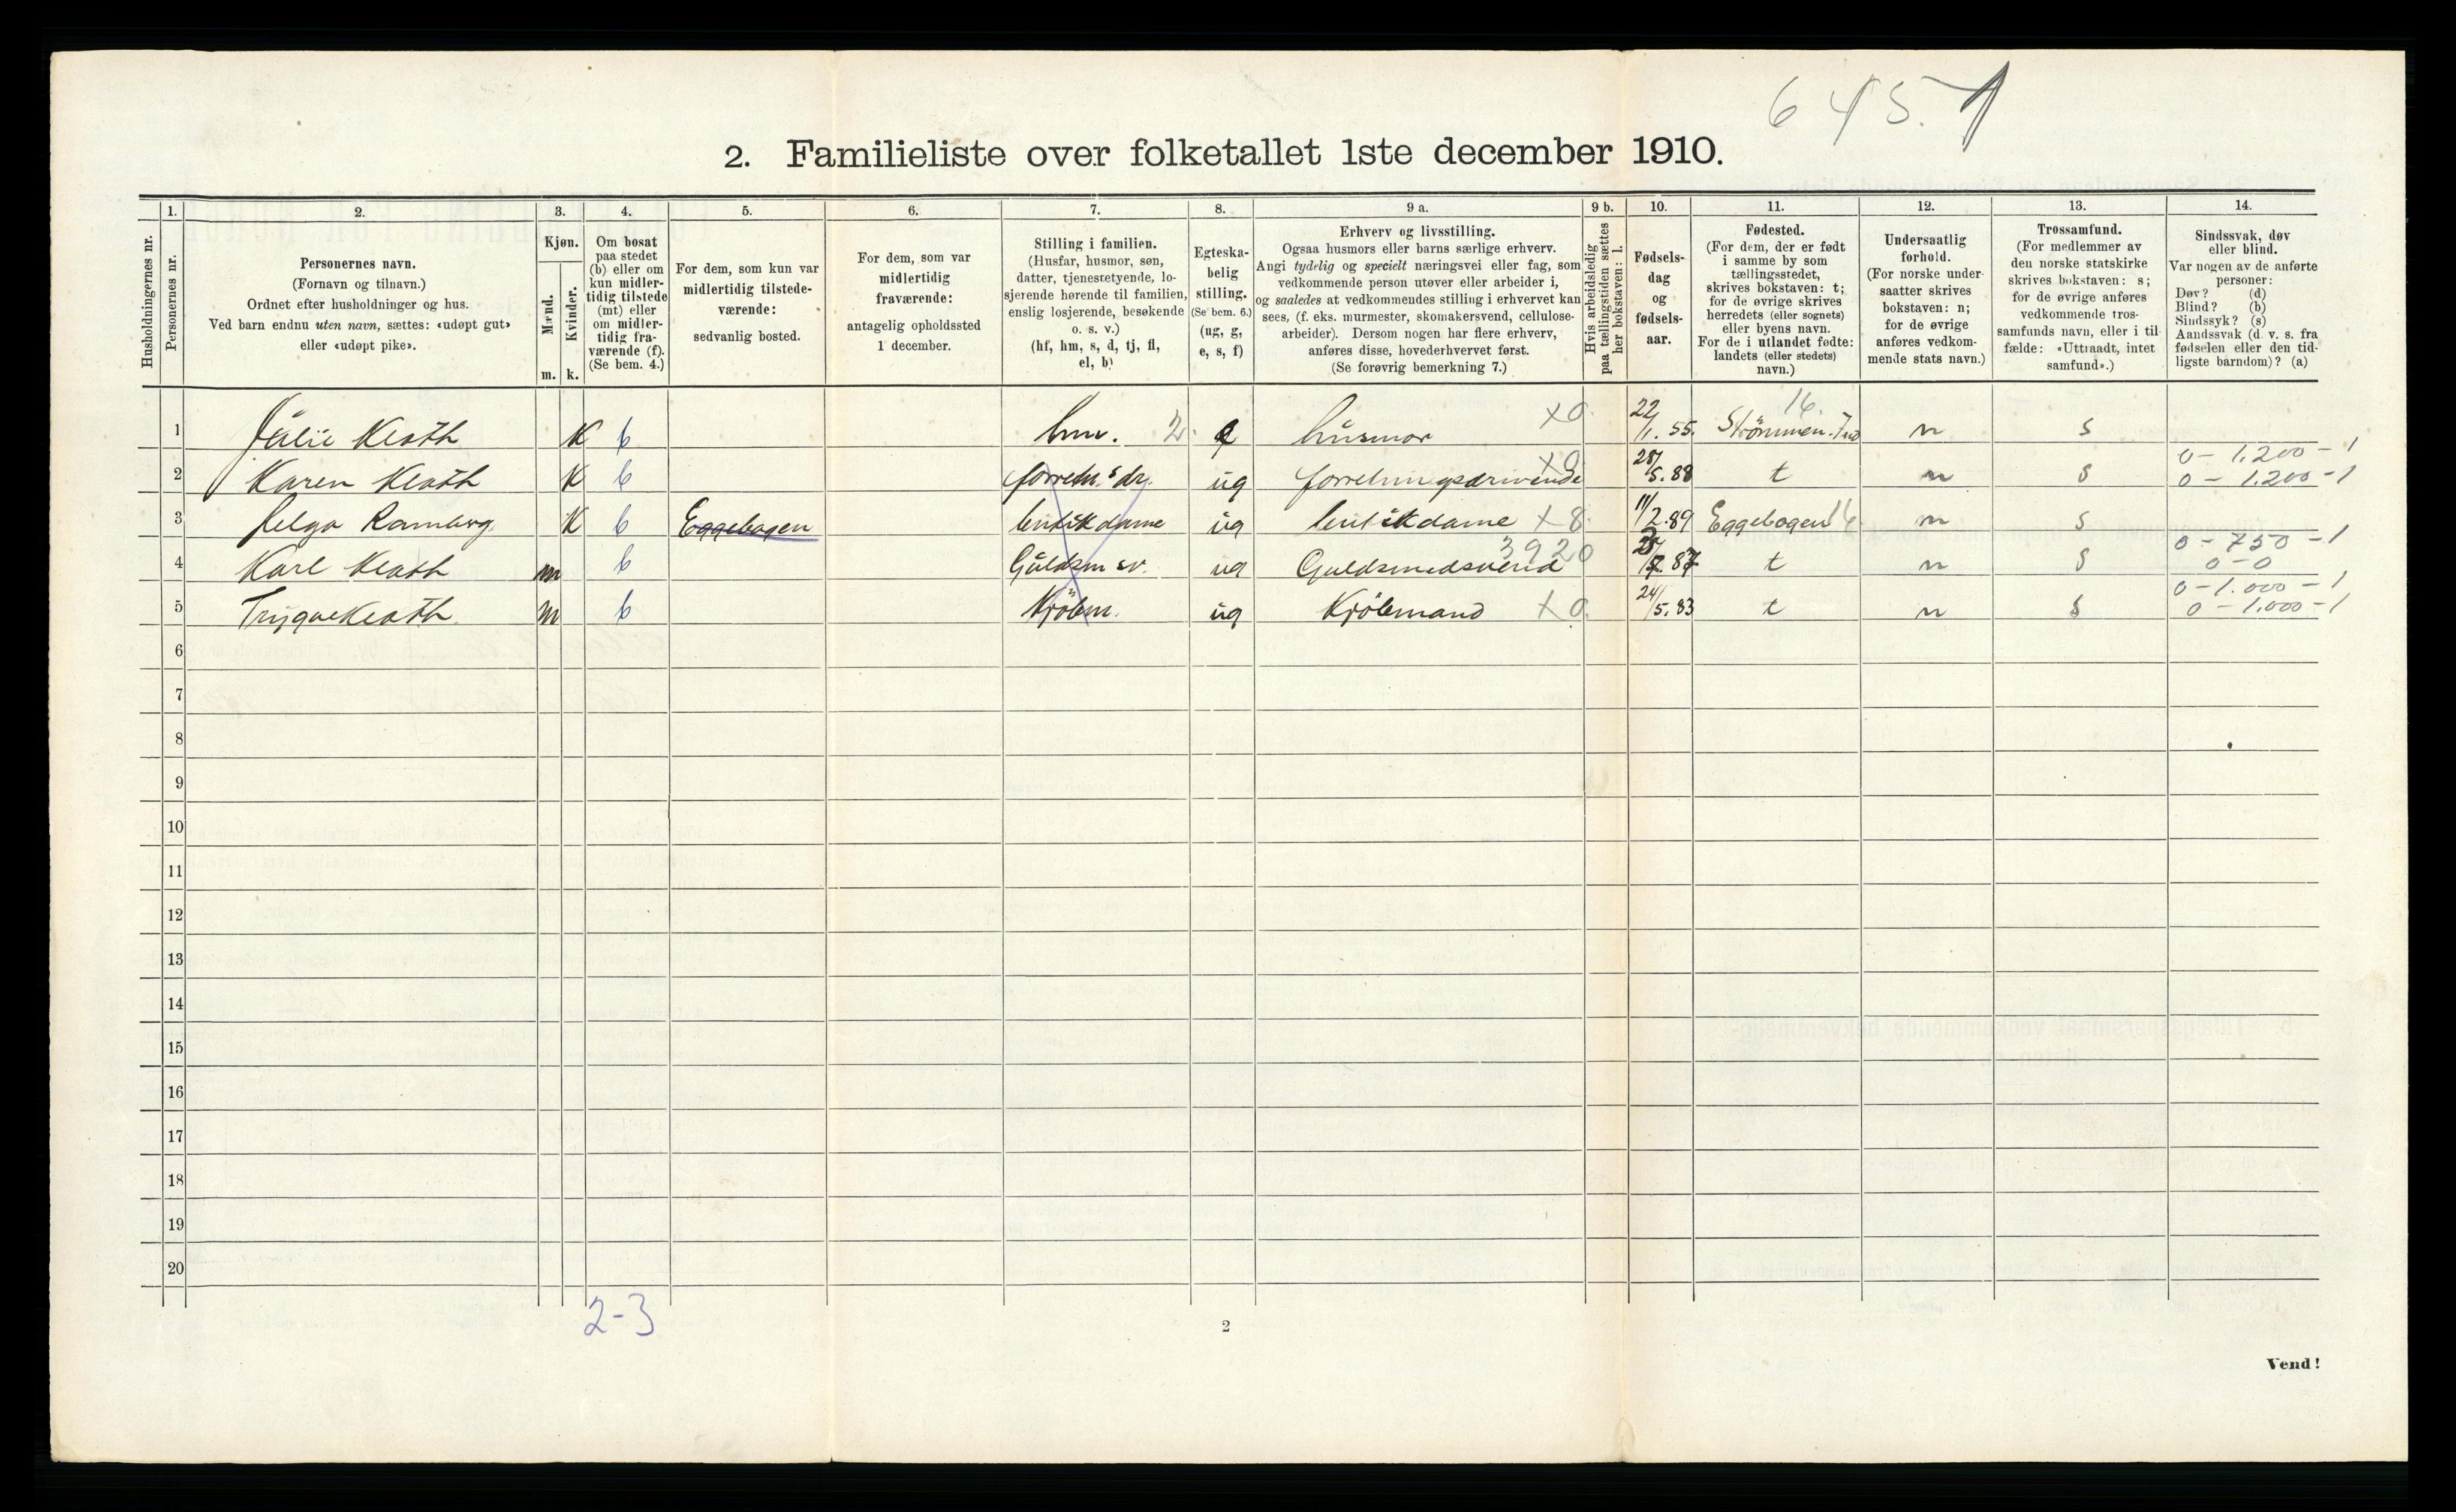 645.1
2. Familieliste over folketallet 1ste december 1910.
1. 2. 3. 4. 5. 6. 7. 8. 9 a. 9 b. 10. 11. 12. 13. 14.
Husholdningernes nr.
Personernes nr.
Personernes navn.
(Fornavn og tilnavn.)
Ordnet efter husholdninger og hus.
Ved barn endnu uten navn, sættes: «udøpt gut»
eller «udøpt pike».
Kjøn.
Mænd.
Kvinder.
m. k.
Om bosat
paa stedet
(b) eller om
kun midler-
tidig tilstede
(mt) eller
om midler-
tidig fra-
værende (f).
(Se bem. 4.)
For dem, som kun var
midlertidig tilstede-
værende:
sedvanlig bosted.
For dem, som var
midlertidig
fraværende:
antagelig opholdssted
1 december.
Stilling i familien.
(Husfar, husmor, søn,
datter, tjenestetyende, lo-
sjerende hørende til familien,
enslig losjerende, besøkende
o. s. v.)
(hf, hm, s, d, tj, fl,
el, b)
Egteska-
belig
stilling.
(Se bem. 6.)
(ug, g,
e, s, f)
Erhverv og livsstilling.
Ogsaa husmors eller barns særlige erhverv.
Angi tydelig og specielt næringsvei eller fag, som
vedkommende person utøver eller arbeider i,
og saaledes at vedkommendes stilling i erhvervet kan
sees, (f. eks. murmester, skomakersvend, cellulose-
arbeider). Dersom nogen har flere erhverv,
anføres disse, hovederhvervet først.
(Se forøvrig bemerkning 7.)
Hvis arbeidsledig
paa tællingstiden sættes
her bokstaven: l.
Fødsels-
dag
og
fødsels-
aar.
Fødested.
(For dem, der er født
i samme by som
tællingsstedet,
skrives bokstaven: t;
for de øvrige skrives
herredets (eller sognets)
eller byens navn.
For de i utlandet fødte:
landets (eller stedets)
navn.)
Undersaatlig
forhold.
(For norske under-
saatter skrives
bokstaven: n;
for de øvrige
anføres vedkom-
mende stats navn.)
Trossamfund.
(For medlemmer av
den norske statskirke
skrives bokstaven: s;
for de øvrige anføres
vedkommende tros-
samfunds navn, eller i til-
fælde: «Uttraadt, intet
samfund».)
Sindssvak, døv
eller blind.
Var nogen av de anførte
personer:
Døv? (d)
Blind? (b)
Sindssyk? (s)
Aandssvak (d. v. s. fra
fødselen eller den tid-
ligste barndom)? (a)
1 Julie Kloth K b hm. 2. husmor x0. 22/1. 55. Strömmen 16. n s
0 - 1.200 - 1
2 Karen Kloth K b forretn.s dr. ug forretningsdrivende x0 28/5. 88 t n s 0 - 1.200 - 1
3 Helga Ramberg K b Eggebogen butikdame ug butikdame x 8. 11/2. 89 Eggebogen 16. n s
0 - 750 - 1
4 Karl Kloth m b Guldsm sv. ug Guldsmedsvend 3920 87 t n s 0 - 0
0 - 1.000 - 1
5 Trygve Kloth m b Kjöbm. ug Kjöbmand x 0. 24/5. 83 t n s 0 - 1.000 - 1
6
7
8
9
10
11
12
13
14
15
16
17
18
19
20
2-3
2
Vend!